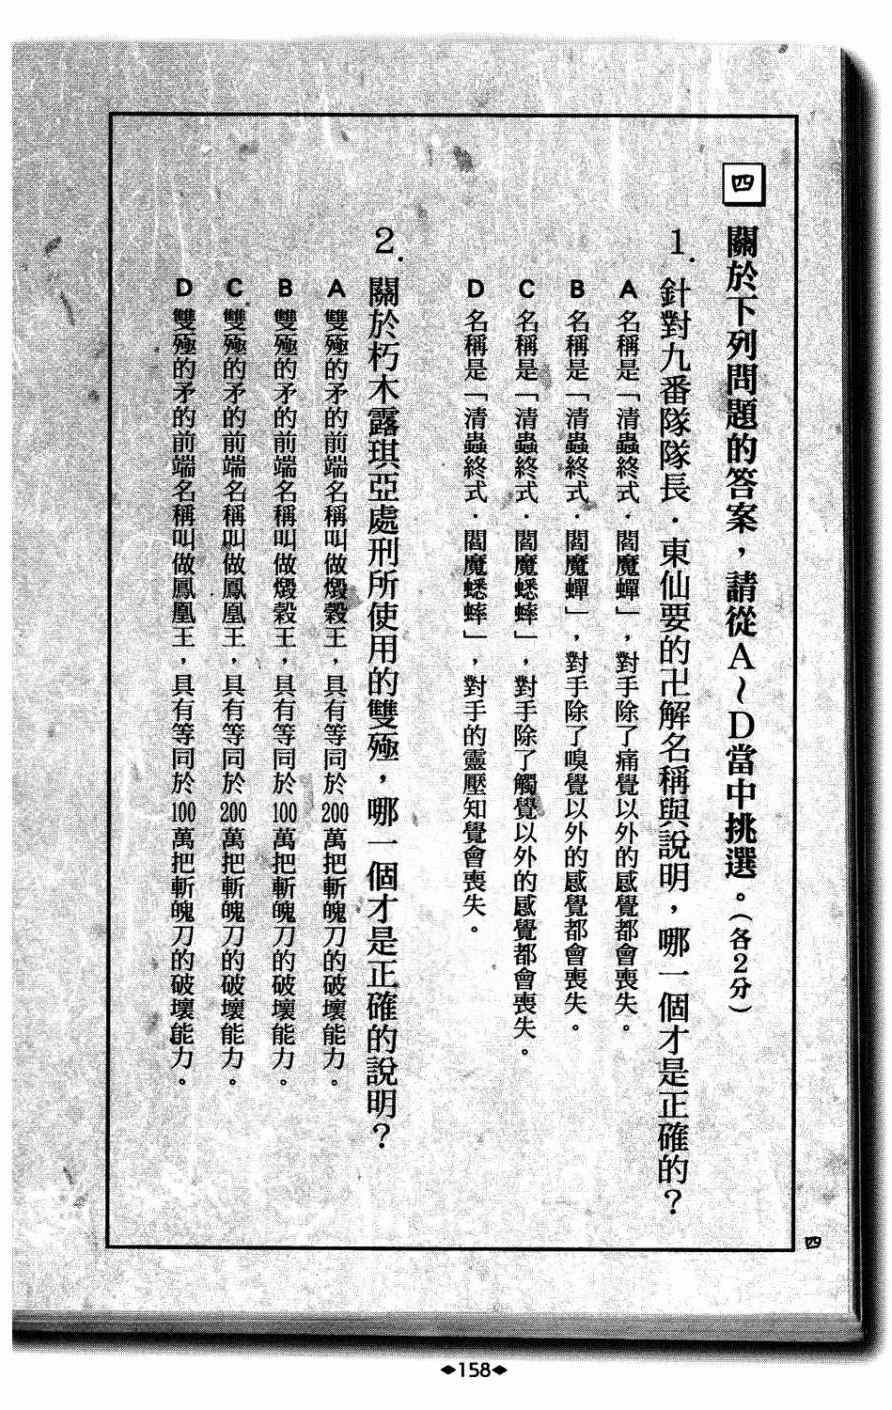 四 關於下列問題的答案，請從A～D當中挑選。（各2分）
1. 針對九番隊隊長．東仙要的卍解名稱與說明，哪一個才是正確的？
A 名稱是「清蟲終式．閻魔蟬」，對手除了痛覺以外的感覺都會喪失。
B 名稱是「清蟲終式．閻魔蟬」，對手除了嗅覺以外的感覺都會喪失。
C 名稱是「清蟲終式．閻魔蟋蟀」，對手除了觸覺以外的感覺都會喪失。
D 名稱是「清蟲終式．閻魔蟋蟀」，對手的靈壓知覺會喪失。
2. 關於朽木露琪亞處刑所使用的雙殛，哪一個才是正確的說明？
A 雙殛的矛的前端名稱叫做燬鷇王，具有等同於200萬把斬魄刀的破壞能力。
B 雙殛的矛的前端名稱叫做燬鷇王，具有等同於100萬把斬魄刀的破壞能力。
C 雙殛的矛的前端名稱叫做鳳凰王，具有等同於200萬把斬魄刀的破壞能力。
D 雙殛的矛的前端名稱叫做鳳凰王，具有等同於100萬把斬魄刀的破壞能力。
四
◆158◆